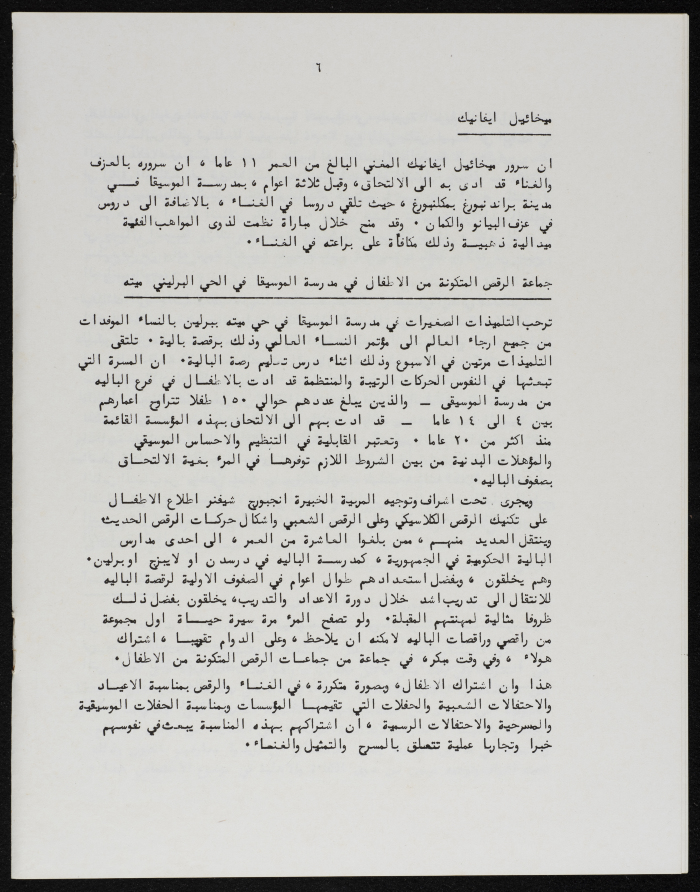 ٦
ميخائيل ايفانيك
ان سرور ميخائيل ايفانيك المغني البالغ من العمر ١١ عاما ، ان سروره بالعزف
والغناء قد ادى به الى الالتحاق ، وقبل ثلاثة اعوام ، بمدرسة الموسيقا فــي
مدينة براندنبورغ بمكلنبورغ ، حيث تلقي دروسا في الغناء ، بالاضافة الى دروس
في عزف البيانو والكمان ٠ وقد منح خلال مباراة نظمت لذوى المواهب الفنية
ميدالية ذهبية وذلك مكافأة على براعته في الغناء ٠
جماعة الرقص المتكونة من الاطفال في مدرسة الموسيقا في الحي البرليني ميته
ترحب التلميذات الصغيرات في مدرسة الموسيقا في حي ميته ببرلين بالنساء الموفدات
من جميع ارجاء العالم الى مؤتمر النساء العالمي وذلك برقصة بالية ٠ تلتقى
التلميذات مرتين في الاسبوع وذلك اثناء درس تعليم رصة البالية ٠ ان المسرة التي
تبعثها في النفوس الحركات الرتيبة والمنتظمة قد ادت بالاطفال في فرع الباليه
من مدرسة الموسيقى ــ والذين يبلغ عددهم حوالي ١٥٠ طفلا تتراوح اعمارهم
بين ٤ الى ١٤ عاما ــ قد ادت بهم الى الالتحاق بهذه المؤسسة القائمة
منذ اكثر من ٢٠ عاما ٠ وتعتبر القابلية في التنظيم والاحساس الموسيقي
والمؤهلات البدنية من بين الشروط اللازم توفرها في المرء بغية الالتحاق
بصفوف الباليه ٠
ويجرى تحت اشراف وتوجيه المربية الخبيرة انجبورج شيفنر اطلاع الاطفال
على تكنيك الرقص الكلاسيكي وعلى الرقص الشعبي واشكال حركات الرقص الحديث
وينتقل العديد منهم ، ممن بلغوا العاشرة من العمر ، الى احدى مدارس
البالية الحكومية في الجمهورية ، كمدرسة الباليه في درسدن او لايبزج او برلين ٠
وهم يخلقون ، وبفضل استعدادهم طوال اعوام في الصفوف الاولية لرقصة الباليه
للانتقال الى تدريب اشد خلال دورة الاعداد والتدريب، يخلقون بفضل ذلك
ظروفا مثالية لمهنتهم المقبلة ٠ ولو تصفح المرء مرة سيرة حياة اول مجموعة
من راقصي وراقصات الباليه لامكنه ان يلاحظ ، وعلى الدوام تقريبا ، اشتراك
هولاء ، وفي وقت مبكر، في جماعة من جماعات الرقص المتكونة من الاطفال ٠
هذا وان اشتراك الاطفال، وبصورة متكررة ، في الغناء والرقص بمناسبة الاعياد
والاحتفالات الشعبية والحفلات التي تقيمها المؤسسات وبمناسبة الحفلات الموسيقية
والمسرحية والاحتفالات الرسمية ، ان اشتراكهم بهذه المناسبة يبعث في نفوسهم
خبرا وتجاربا عملية تتعلق بالمسرح والتمثيل والغناء ٠